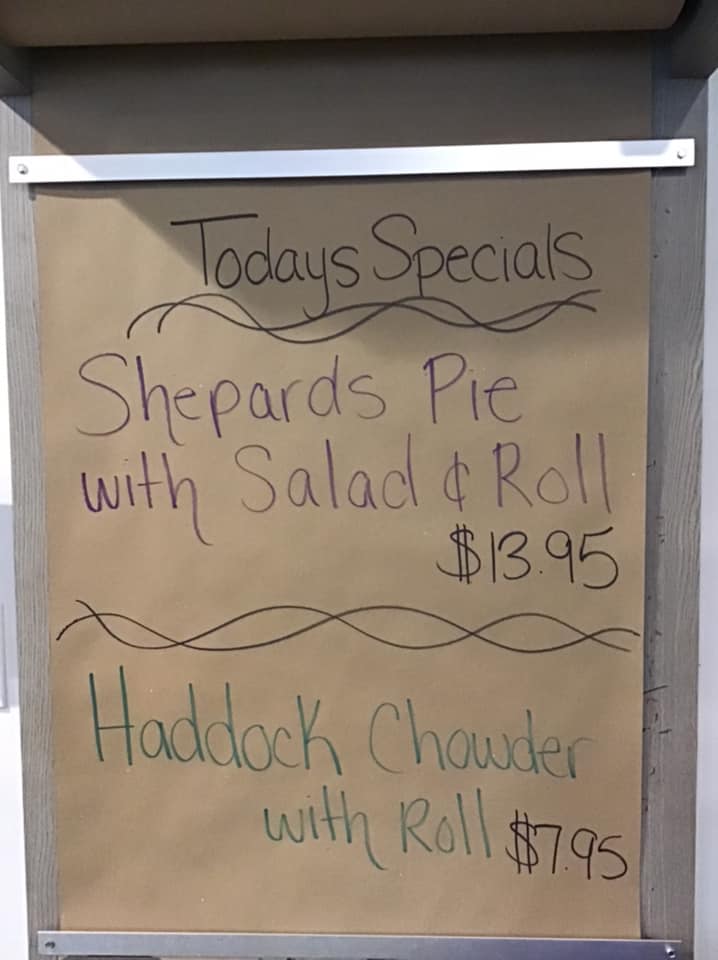 Todays Specials
Shepards Pie
with Salad & Roll
$13.95
Haddock Chowder
with Roll $7.95